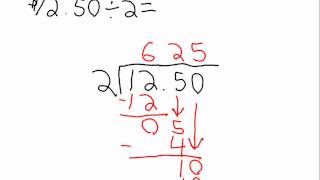 12.50÷2=
625
2 12.50
-12
05
-4
10